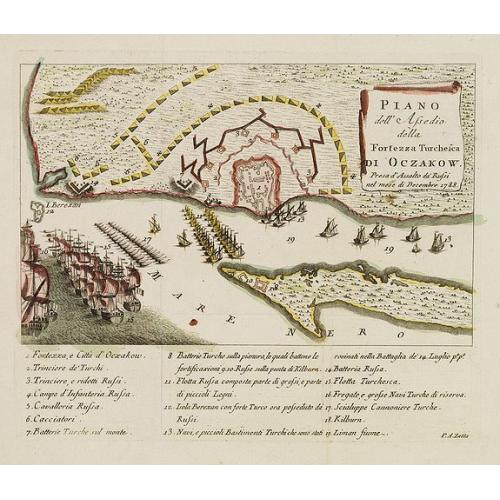 PIANO
dell' Assedio
della
Fortezza Turchesca
DI OCZAKOW.
Presa d'Assalto da' Russi
nel mese di Decembre 1788.
I. Berezan
12
17
19
19
MARE NERO
1. Fortezza, e Città d'Oczakow.
2. Trinciere de' Turchi.
3. Trinciere, e ridotti Russi.
4. Campo d'Infanteria Russa.
5. Cavalleria Russa.
6. Cacciatori.
7. Batterie Turche sul monte.
8 Batterie Turche sulla pianura, le quali battono le
fortificazioni 9.10. Russe sulla punta di Kilburn.
11. Flotta Russa composta parte di grossi, e parte
di piccioli Legni.
12. Isola Berezan con forte Turco ora posseduto da
Russi.
13. Navi, e piccioli Bastimenti Turchi che sono stati
rovinati nella Battaglia de' 14. Luglio p.º p.º
14. Batteria Russa.
15. Flotta Turchesca.
16. Fregate, e grosse Navi Turche di riserva.
17. Scialuppe Cannoniere Turche.
18. Kilburn.
19. Liman fiume.
P. A. Zatta